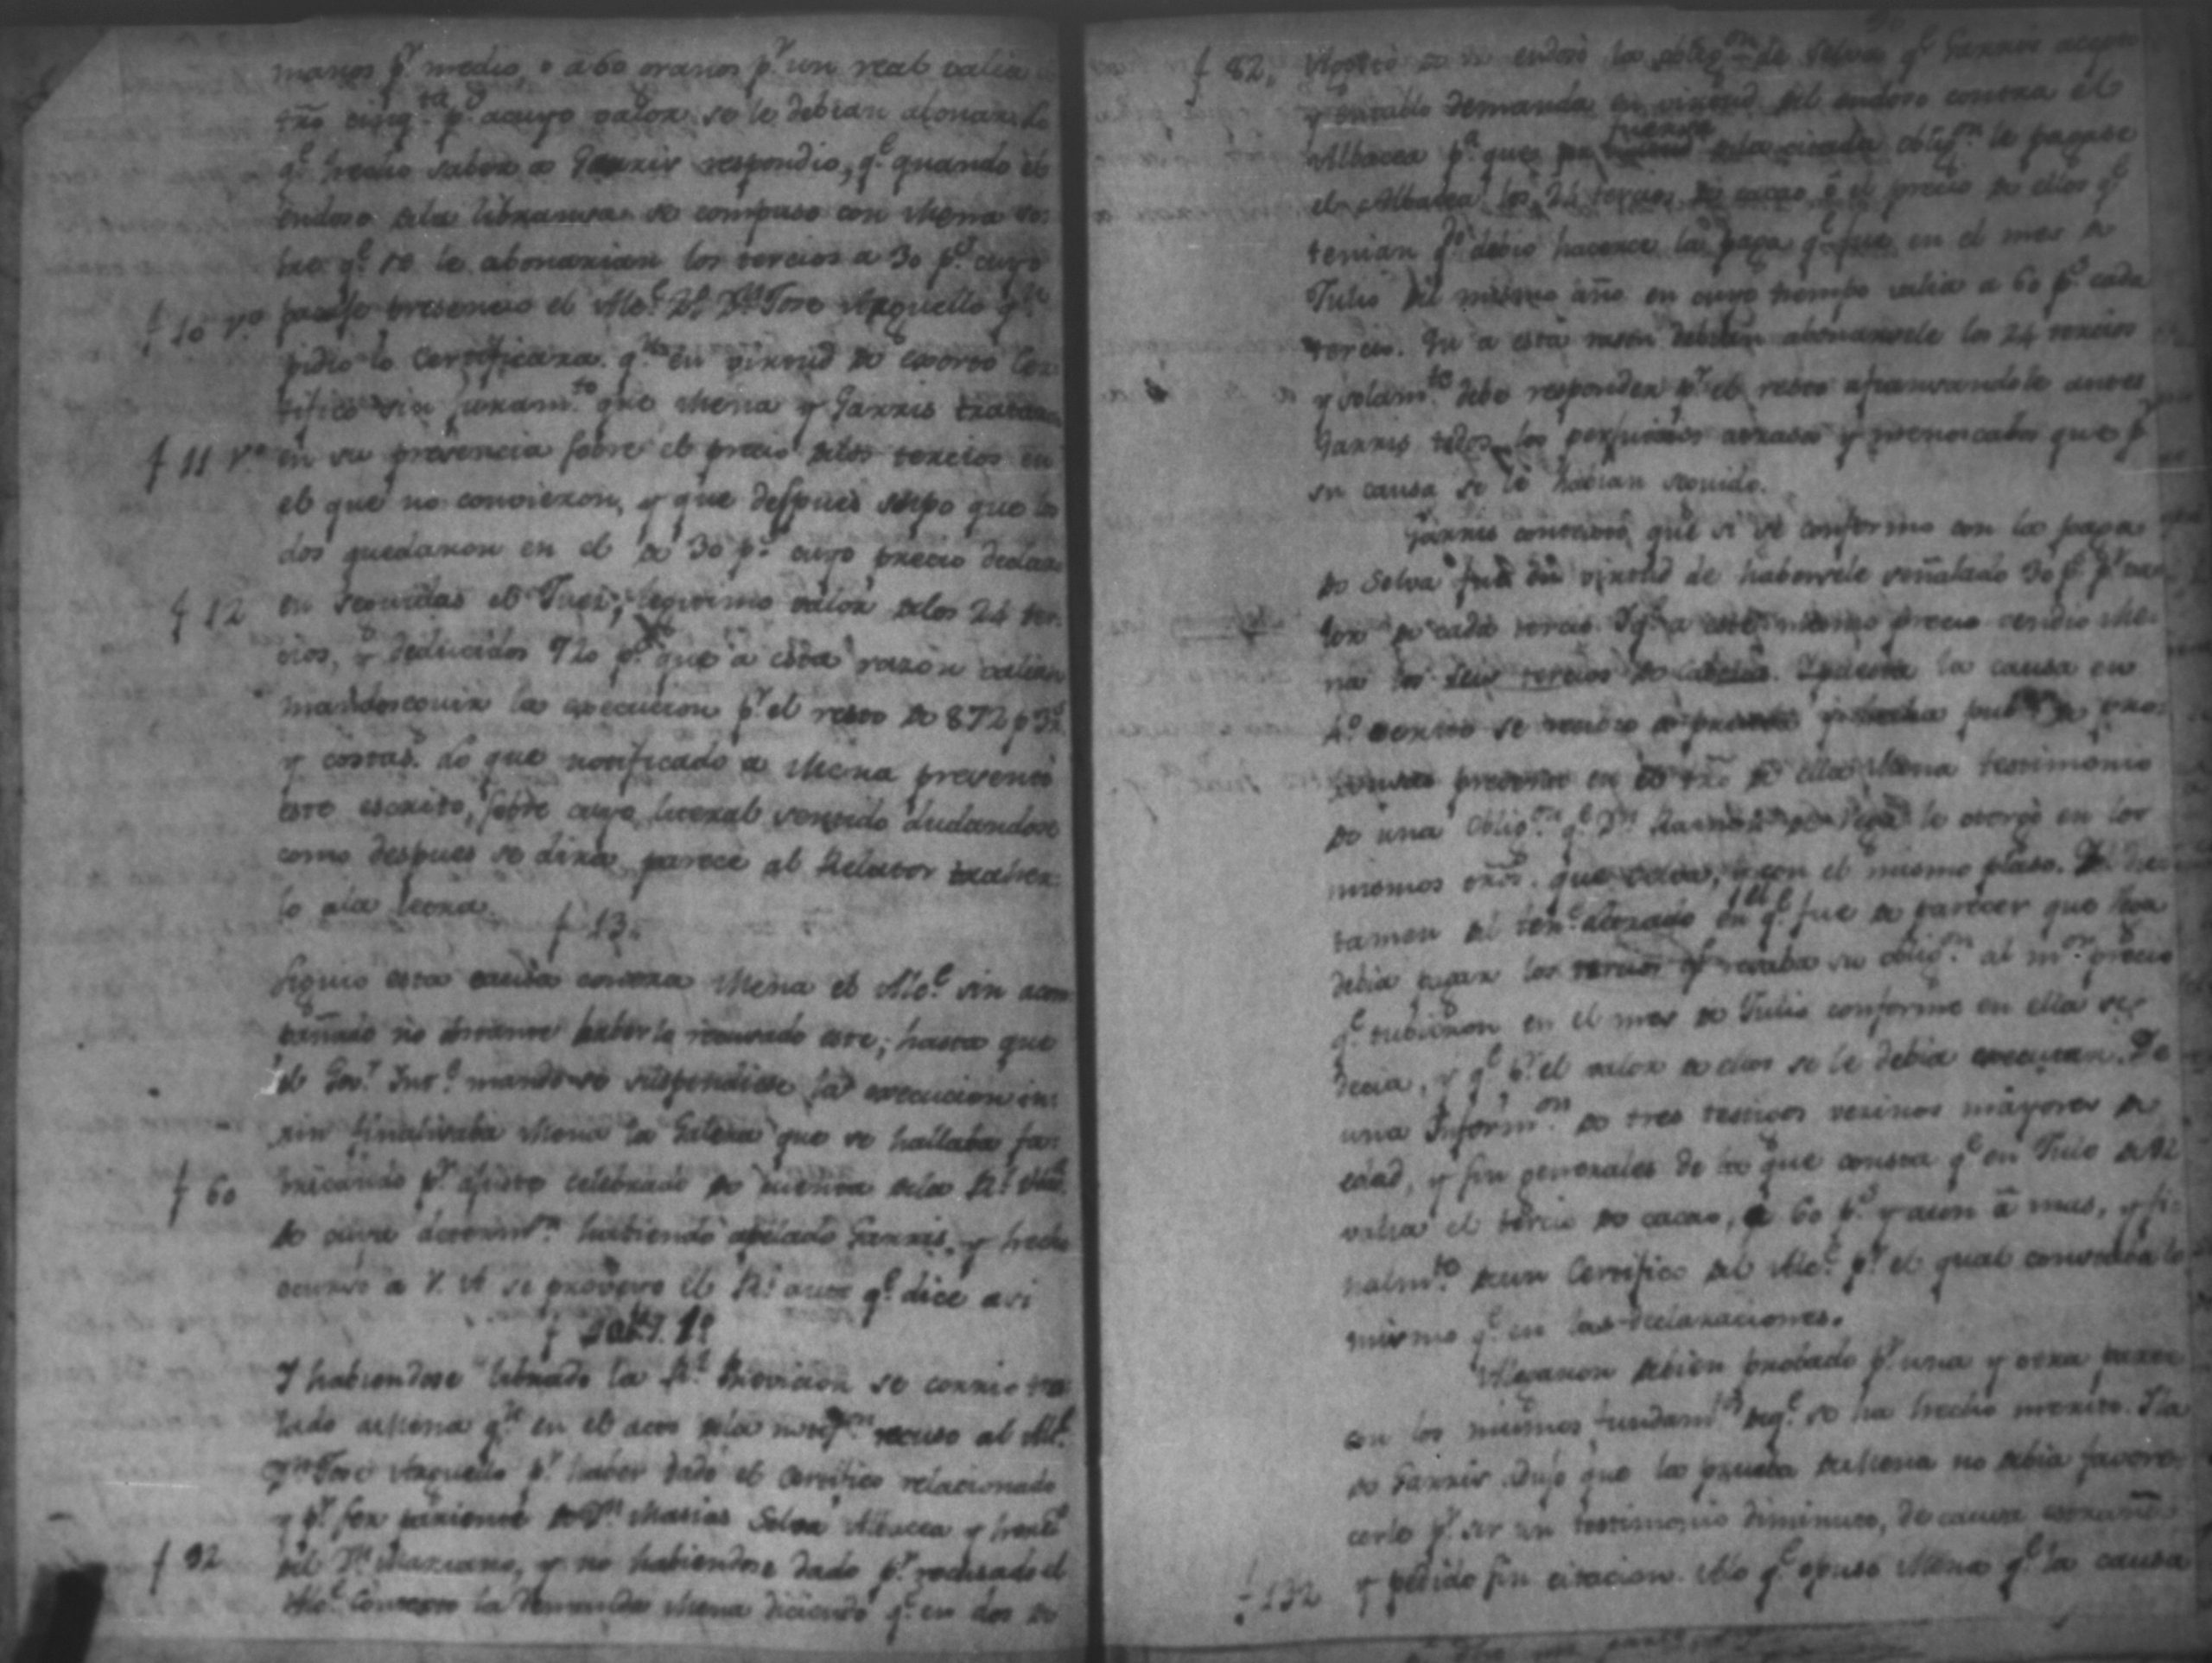 manos p.r medio, o a 60 granos p.r un real valia
tro cinq.ta p.s a cuyo valor se le debian abonar. Lo
q.e hecho saber a Garris respondio, q.e quando el
endoso dela libransa se compuso con Mena so-
bre q.e se le abonarian los tercios a 30 p.s cuyo
f 10 v.o pacto presencio el Alc.e D.n Jose Arguello q.e
pidio lo Certificara. q.n en virtud de esto Cer-
tifico sin juram.to que Mena y Garris trataron
f 11 v.o en su presencia sobre el precio delos tercios en
el que no convinieron, y que despues supo que to
dos quedaron en el de 30 p.s cuyo precio declaro
f 12 en seguidas el Juez, legitimo valor delos 24 ter-
cios, y deducidos 720 p.s que a esta razon valian
mando seguir la execucion p.r el resto de 872 p.s 3 r.s
y costas. Lo que notificado a Mena presentó
este escrito, sobre cuyo literal sentido dudandose
como despues se dira, parece al Relator traherlo
lo ala letra.
f 13.
Siguio esta causa contra Mena el Alc.e sin acom
pañado no obstante haberlo recusado este; hasta que
el Gov.r Int.e mando se suspendiese la execucion in-
rin finalizaba Mena la Galera que se hallaba fa-
f 60 bricando p.r ajuste celebrado de cuenta dela R.l
de cuya determ.n habiendo apelado Garris, y hecho
ocurso a V. A se proveyo el R.l auto q.e dice asi
f 1.o
Y habiendose librado la R.l Provicion se corrio tras
lado a Mena q.n en el acto dela notif.on recuso al Alc.e
D.n Jose Arguello p.r haber dado el Certifico relacionado
y p.r ser pariente de D.n Matias Selva Albacea y hered.o
f 92 del D.n Mariano, y no habiendose dado p.r recusado el
Alc.e Contexto la Demanda Mena diciendo q.e en dos de
f 82. Agosto se endosó la oblig.on de Selva q.e Garris acepto
y entablo demanda en virtud del endoso contra el
Albacea p.a que dela citada oblig.n le pagase
el Albacea los 24 tercios de cacao ó el precio de ellos q.e
tenian q.do debió hacerce la paga q.e fue en el mes de
Julio del mismo año en cuyo tiempo valia a 60 p.s cada
tercio. Qe a esta rason debian abonarsele los 24 tercios
y solam.te debe responder p.r el resto afiansandole antes
Garris todos los perjuicios atrasos y menoscabos que p.r
su causa se le habian seguido.
Garris contextó que si se conformo con la paga
de Selva fue en virtud de haberle señalado 30 p.s p.r va-
lor de cada tercio. Y q.e a este mismo precio vendio Me-
na los seis tercios de . Y puesta la causa en
presento en el tño de ella Mena testimonio
de una oblig.on q.e D.n Ramon de Vega le otorgó en los
mismos tños. que Selva, y con el mismo plaso. Del dic-
tamen del ten.e letrado en q.e fue de parecer que Vega
debia pagar los tercios q.e resaba su oblig.n al m.or precio
q.e tubieron en el mes de Julio conforme en ella se
decia, y q.e p.r el valor de ellos se le debia executar. De
una Inform.on de tres testigos vecinos mayores de
edad, y sin generales de la que consta q.e en Julio de 92
valia el tercio de cacao, á 60 p.s y aun á mas, y fi-
nalm.te de un Certifico del Alc.e p.r el qual constaba lo
mismo q.e en las declaraciones.
Alegaron debien probado p.r una y otra parte
con los mismos fundam.tos deq.e se ha hecho merito. Y la
de Garris dijo que la prueba de Mena no debia favore-
cerle p.r ser un testimonio diminuto, de causa estraña
f 132 y pedido sin citacion. Alo q.e opuso Mena q.e la causa